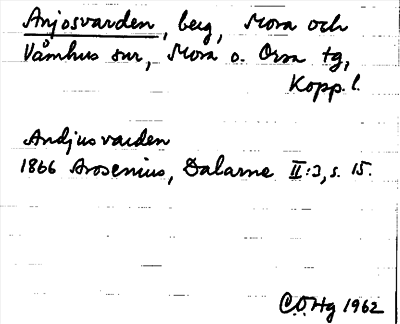 Anjosvarden, berg, Mora och
Våmhus snr, Mora o. Orsa tg,
Kopp. l.
Andjusvarden
1866 Arosenius, Dalarne II:3, s. 15.
C.O.Hg 1962